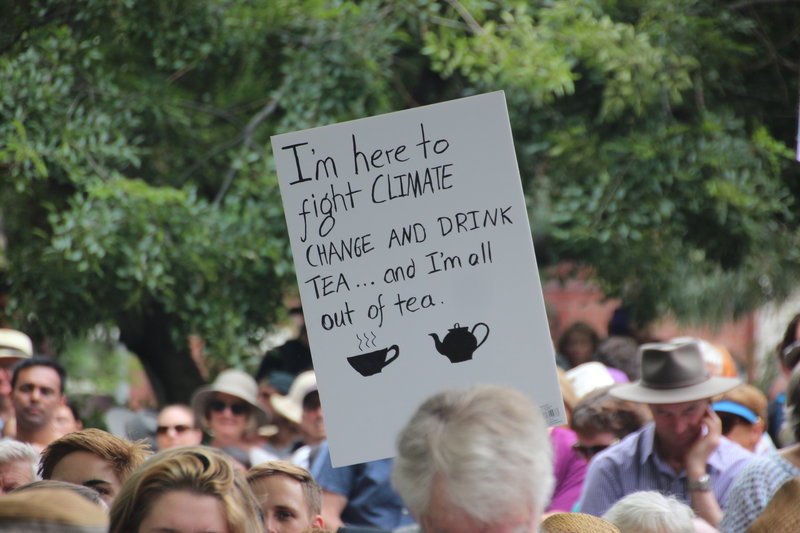 I'm here to
fight CLIMATE
CHANGE AND DRINK
TEA... and I'm all
out of tea.